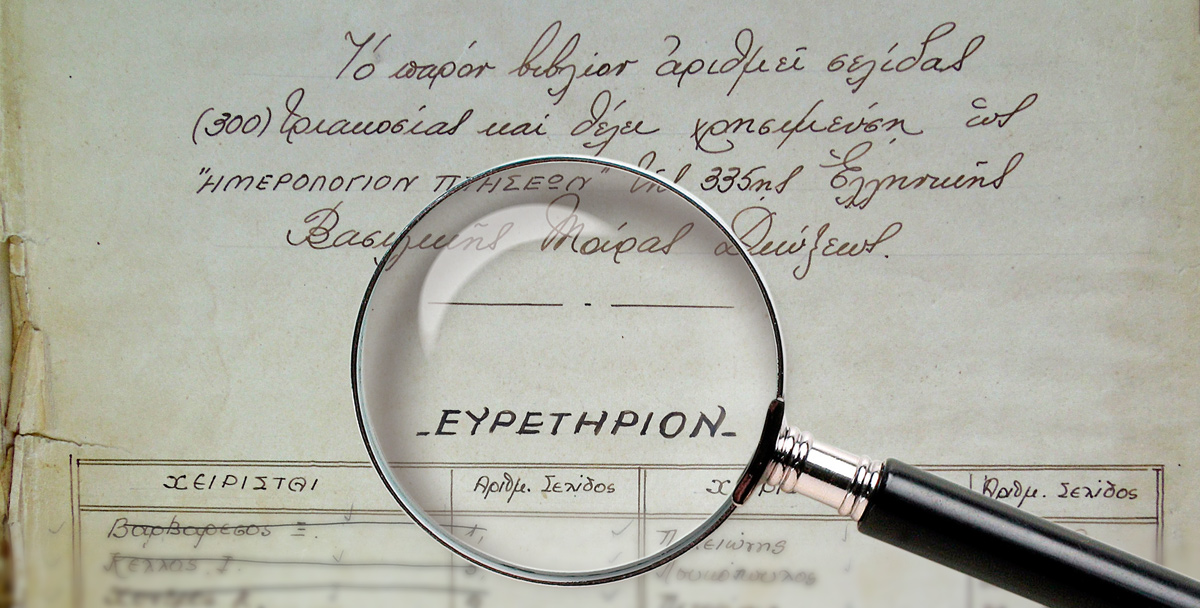 Τό παρόν βιβλίον ἀριθμεῖ σελίδας
(300) τριακοσίας καί θέλει χρησιμεύση ὡς
"ΗΜΕΡΟΛΟΓΙΟΝ ΠΤΗΣΕΩΝ" τῆς 335ης Ἑλληνικῆς
Βασιλικῆς Μοίρας Διώξεως.
- ΕΥΡΕΤΗΡΙΟΝ -
ΧΕΙΡΙΣΤΑΙ Αριθμ. Σελίδος Αριθμ. Σελίδος
Βαρβαρεσος Ξ. 1,
Κελλας Ι.